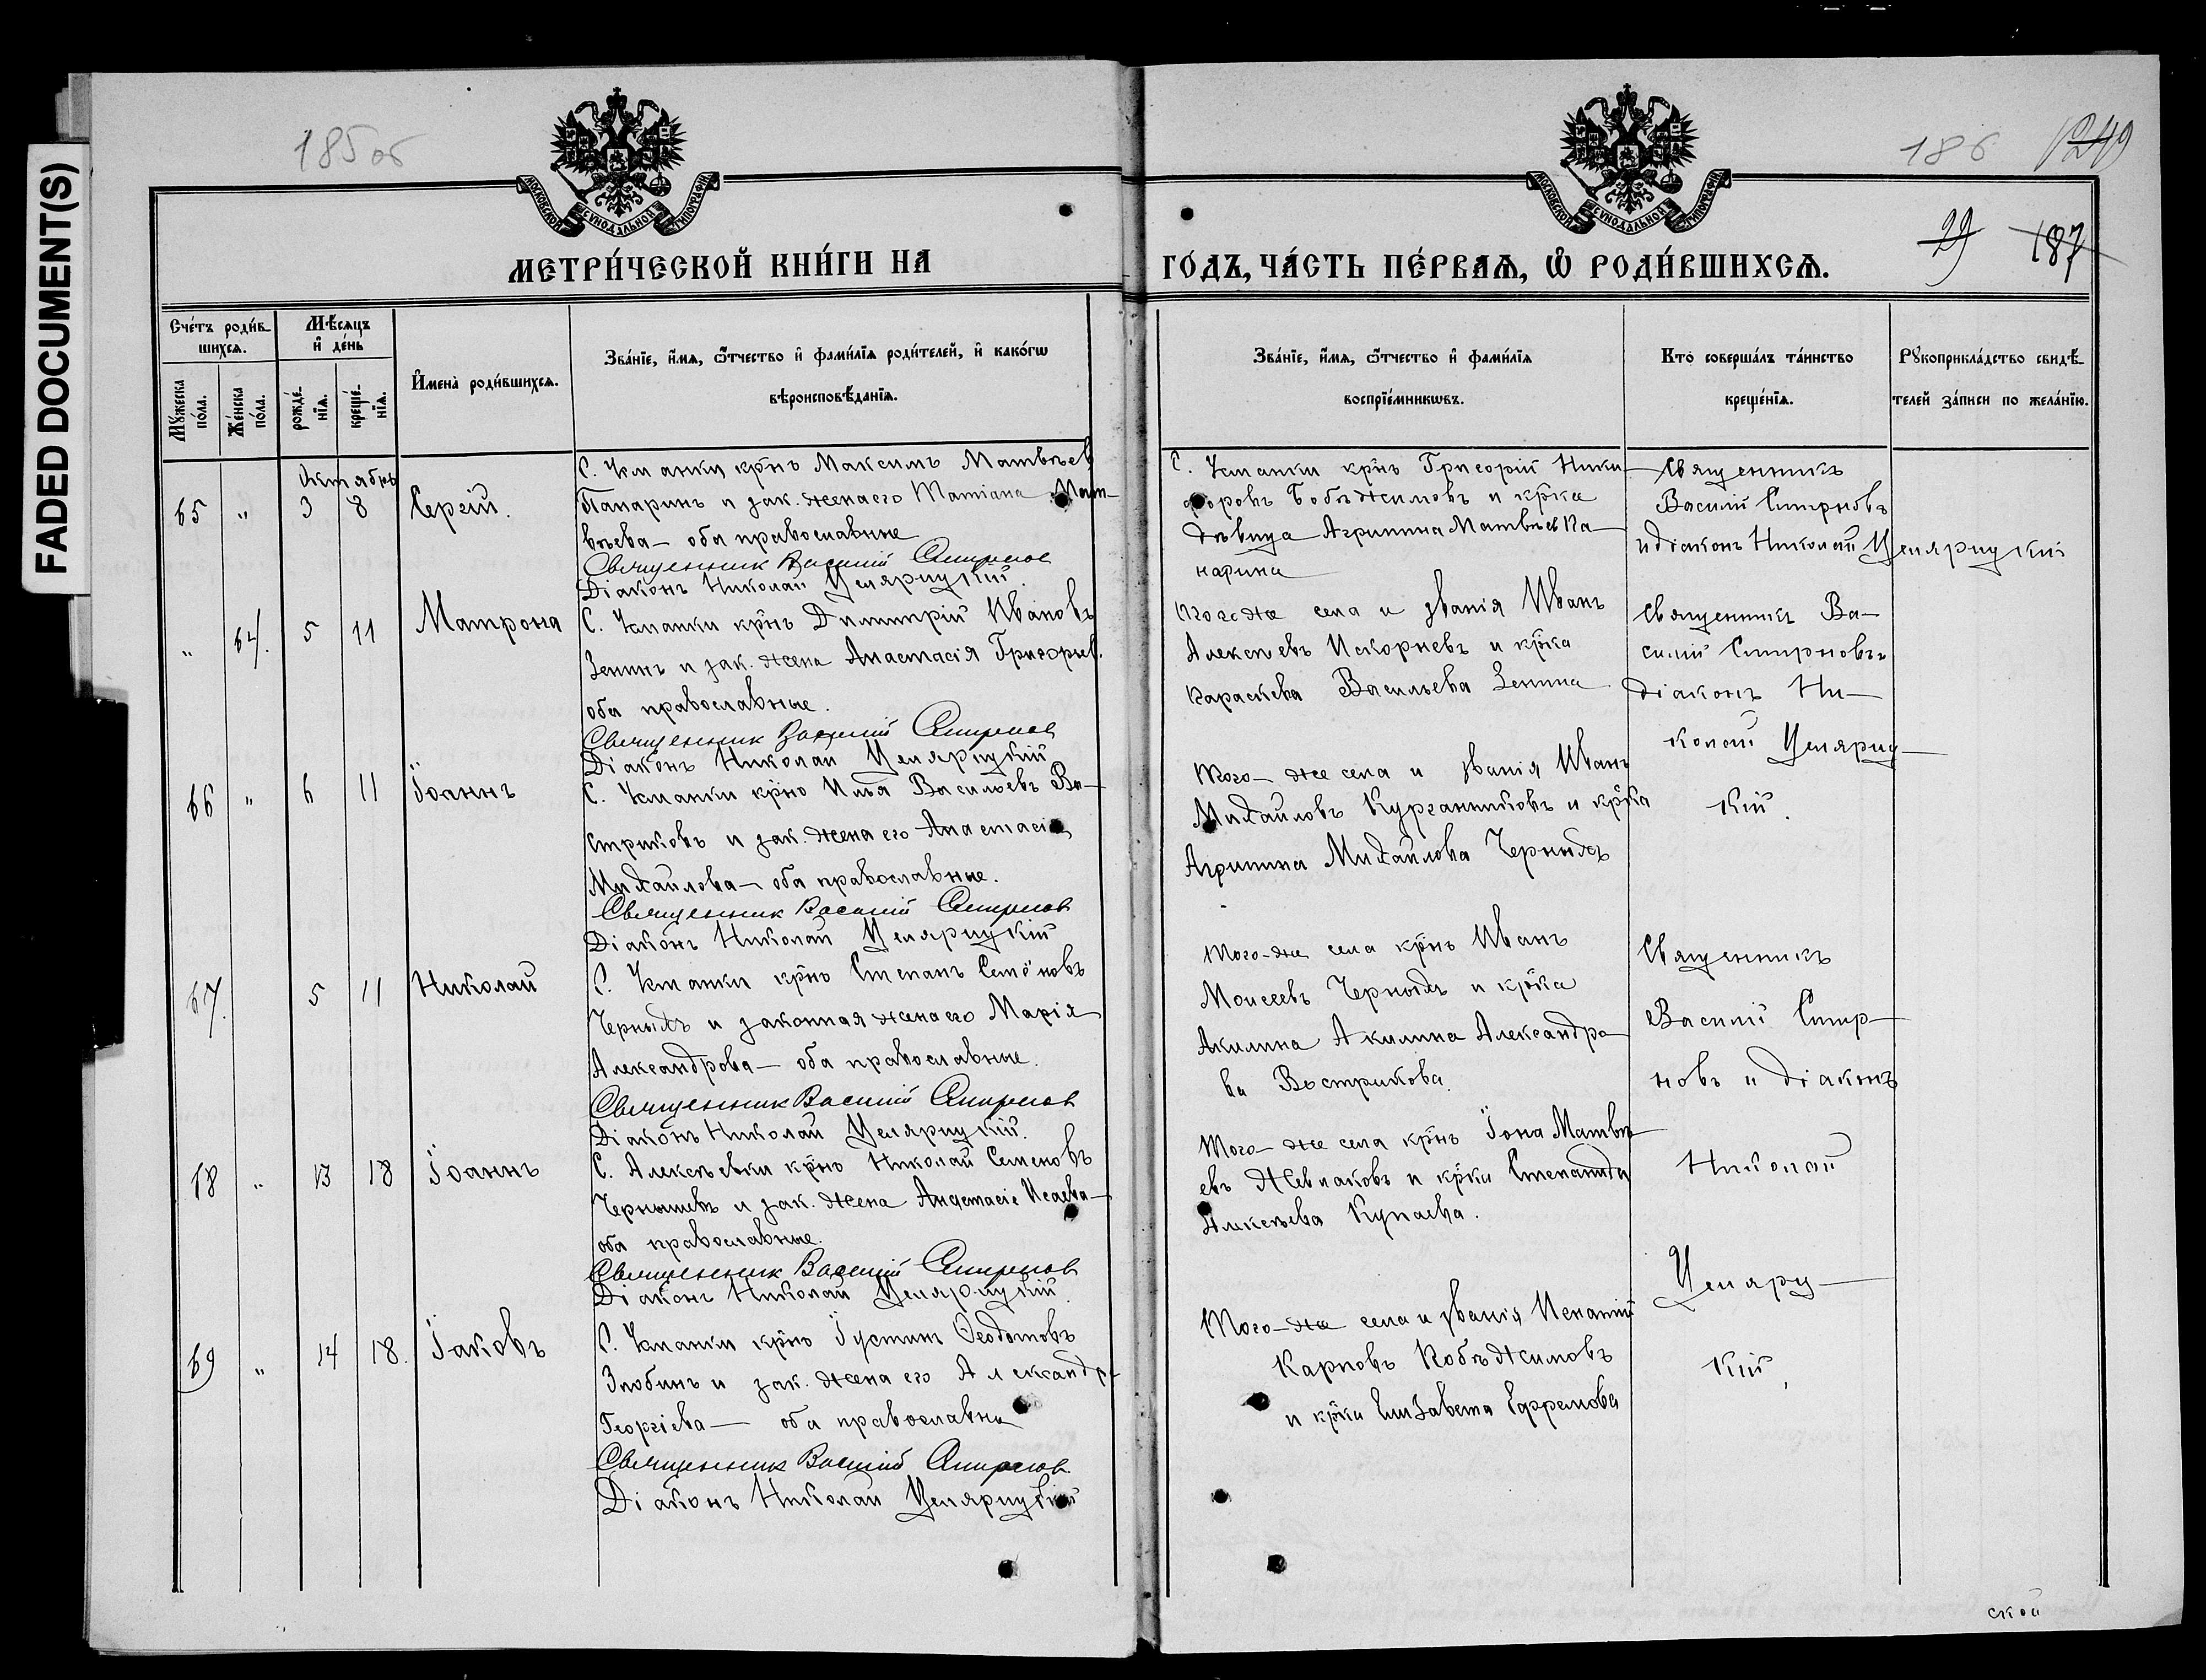 FADED DOCUMENT(S)
185 об
186 1249
29 187
МОСКОВСКОЙ СѴНОДАЛЬНОЙ ТИПОГРАФІИ
МОСКОВСКОЙ СѴНОДАЛЬНОЙ ТИПОГРАФІИ
МЕТРИ́ЧЕСКОЙ КНИ́ГИ НА
ГО́ДЪ, ЧА́СТЬ ПЕ́РВАѦ, Ѽ РОДИ́ВШИХСѦ.
Сче́тъ роди́в-
шихсѧ.
Мꙋжеска по́ла.
Же́нска по́ла.
Мѣ́сѧцъ и҆ де́нь
рожде́-
нїѧ.
креще́-
нїѧ.
И҆мена̀ роди́вшихсѧ.
Зва́нїе, и҆́мѧ, ѻ҆́тчество и҆ фами́лїѧ роди́телей, и҆ како́гѡ
вѣроисповѣ́данїѧ.
Зва́нїе, и҆́мѧ, ѻ҆́тчество и҆ фами́лїѧ
воспрїе́мникѡвъ.
Кто̀ соверша́лъ та́инство
креще́нїѧ.
Рꙋкоприкла́дство свидѣ́-
телей за́писи по жела́нїю.
Октябрь
65 " 3 8 Сергій.
С. Усманки кр̃нъ Максимъ Матвѣев
Панаринъ и зак. жена его Татіана Мат-
вѣева — оба православные
Священник Василий Смирнов
Діаконъ Николай
С. Усманки кр̃нъ Григорій Ники-
форовъ и кр̃ка
дѣвица Агрипина Матвѣев Па-
нарина
Священникъ
Василій Смирновъ
и діаконъ Николай
" 64. 5 11 Матрона
С. Усманки кр̃нъ Димитрій Ивановъ
Зенинъ и зак. жена Анастасія Григорьев.
оба православные.
Священник Василий Смирнов
Діаконъ Николай
Того же села и званія Иванъ
Алексѣевъ Искорневъ и кр̃ка
Параскева Васильева Зенина
Священникъ Ва-
силій Смирновъ
діаконъ Ни-
колай
кій.
66 " 6 11 Іоаннъ
С. Усманки кр̃нъ Илья Васильевъ Во-
стриковъ и зак. жена его Анастасія
Михаилова — оба православные.
Священник Василий Смирнов
Діаконъ Николай
Того-же села и званія Иванъ
Михаиловъ Курганниковъ и кр̃ка
Агрипина Михаилова Черныхъ
67. 5 11 Николай
С. Усманки кр̃нъ Степанъ Семёновъ
Черныхъ и законная жена его Марія
Александрова — оба православные.
Священник Василий Смирнов
Діаконъ Николай
Того-же села кр̃нъ Иванъ
Моисеевъ Черныхъ и кр̃ка
Акилина Акилина Александро-
ва Вострикова.
Священникъ
Василій Смир-
новъ и діаконъ
Николай
кій.
68 " 13 18 Іоаннъ
С. Алексѣевки кр̃нъ Николай Семеновъ
Чернышевъ и зак. жена Анастасіе Исаева —
оба православные.
Священник Василий Смирнов
Діаконъ Николай
Того-же села кр̃нъ Іона Матвѣ-
евъ Жевлаковъ и кр̃ка Степанида
Алексѣева Купаева.
69 " 14 18. Іаковъ
С. Усманки кр̃нъ Іустинъ Ѳеодотовъ
Злобинъ и зак. жена его Александра
Георгіева — оба православны
Священник Василий Смирнов
Діаконъ Николай
Того-же села и званія Игнатій
Карповъ
и кр̃ка Елизавета Ефремова
ской